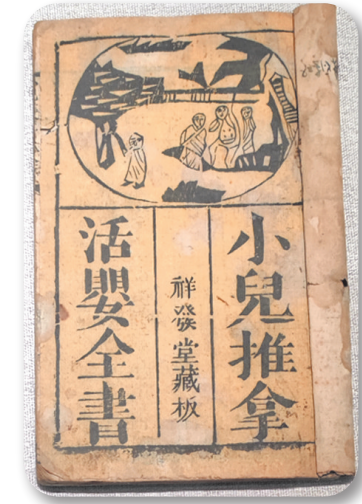 小兒推拿
祥發堂藏板
活嬰全書